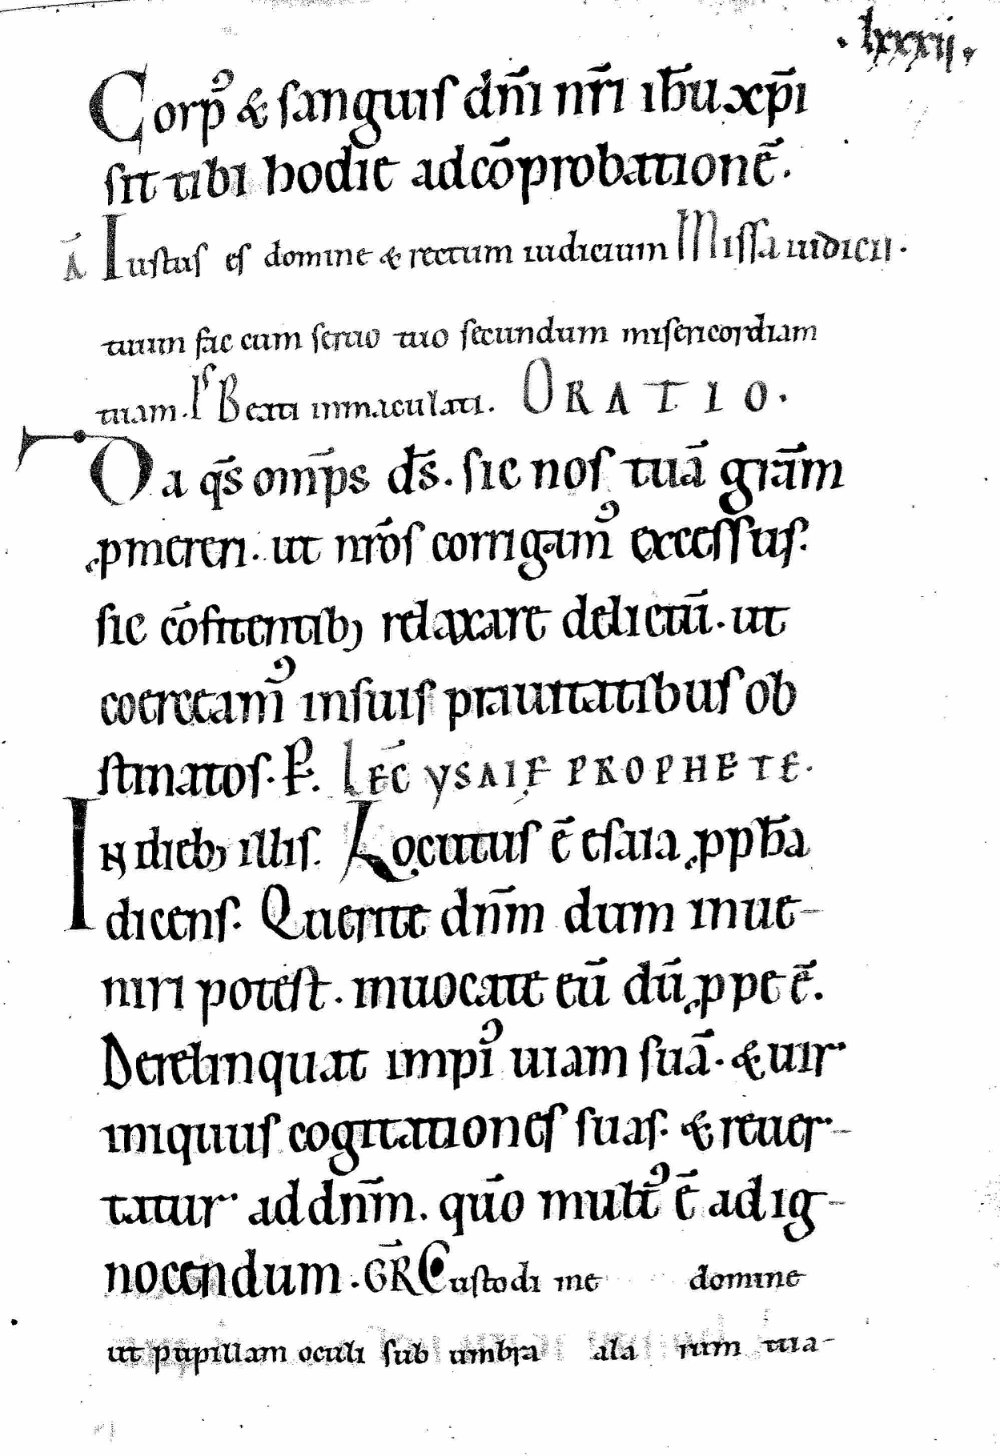 .lxxxii.
Corp⁹ & sanguis dñi nr̄i ih̄u xp̄i
sit tibi hodie adcōprobationē.
Ā Iustus es domine & rectum iudicium Missa iudicii.
tuum fac cum seruo tuo secundum misericordiam
tuam. Ps Beati inmaculati. ORATIO.
Da q̄s om̄ps d̄s. sic nos tuā grām
ꝓmereri. ut nr̄os corrigam⁹ excessus.
sic cōfitentib; relaxare delictū. ut
coerceam⁹ insuis prauitatibus ob
stinatos. P̄. LEC̄ YSAIE PROPHETE.
In dieb; illis. Locutus ē esaia ꝓph̄a
dicens. Querite dñm dum inue-
niri potest. inuocate eū dū ꝓpe ē.
Derelinquat impi⁹ uiam suā. & uir
iniquus cogitationes suas. & reuer-
tatur ad dñm. qūo mult⁹ ē ad ig-
nocendum. GR̄ Custodi me domine
ut pupillam oculi sub umbra ala rum tua-